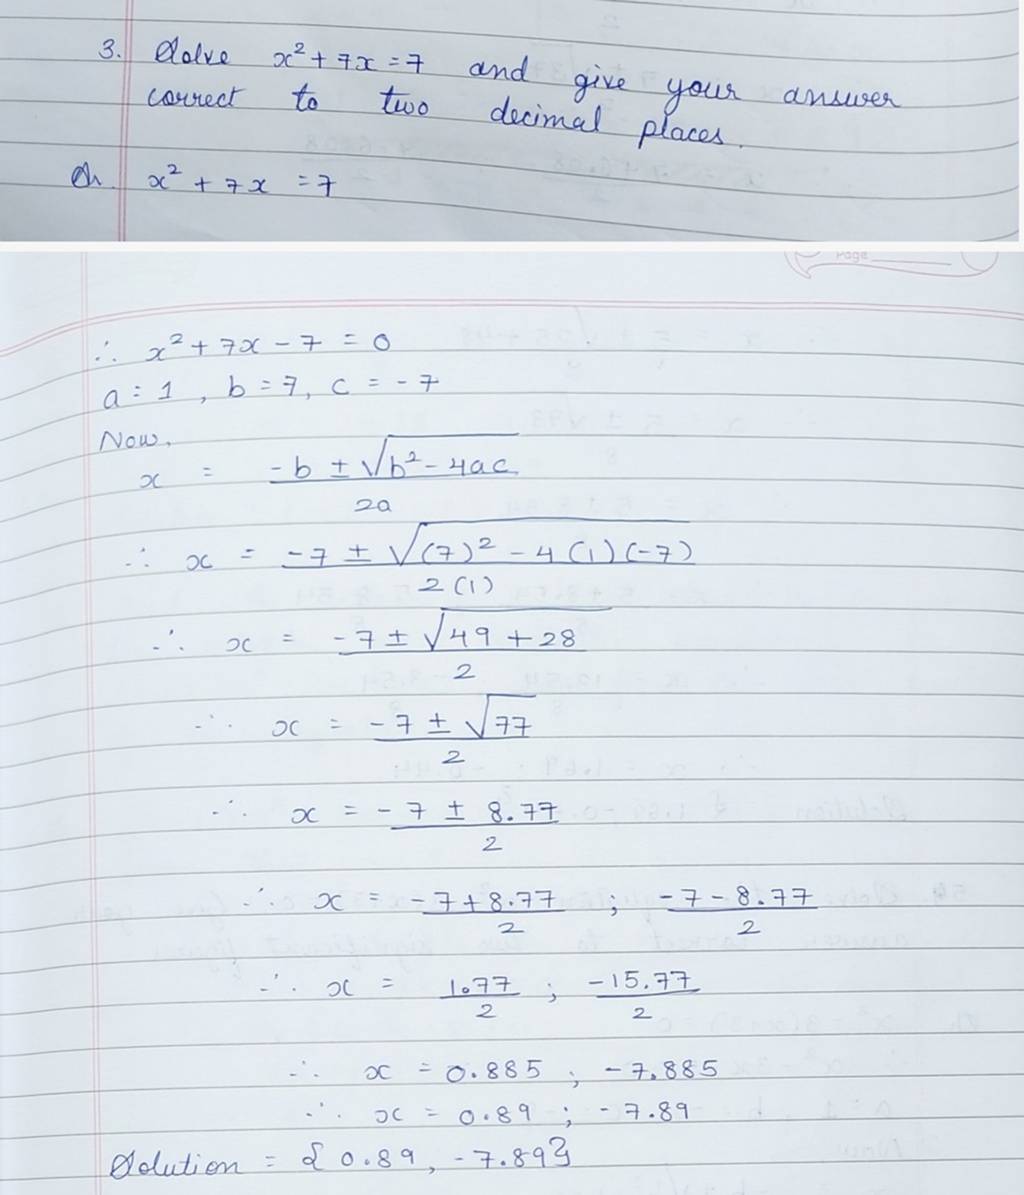 3. Solve x² + 7x = 7 and give your answer
correct to two decimal places.
x² + 7x = 7
Page
∴ x² + 7x - 7 = 0
a = 1, b = 7, c = -7
Now,
x = (-b ± √(b² - 4ac))/2a
∴ x = (-7 ± √((7)² - 4(1)(-7)))/2(1)
∴ x = (-7 ± √(49 + 28))/2
∴ x = (-7 ± √77)/2
∴ x = (-7 ± 8.77)/2
∴ x = (-7 + 8.77)/2 ; (-7 - 8.77)/2
∴ x = 1.77/2 ; -15.77/2
∴ x = 0.885 ; -7.885
∴ x = 0.89 ; -7.89
Solution = {0.89, -7.89}